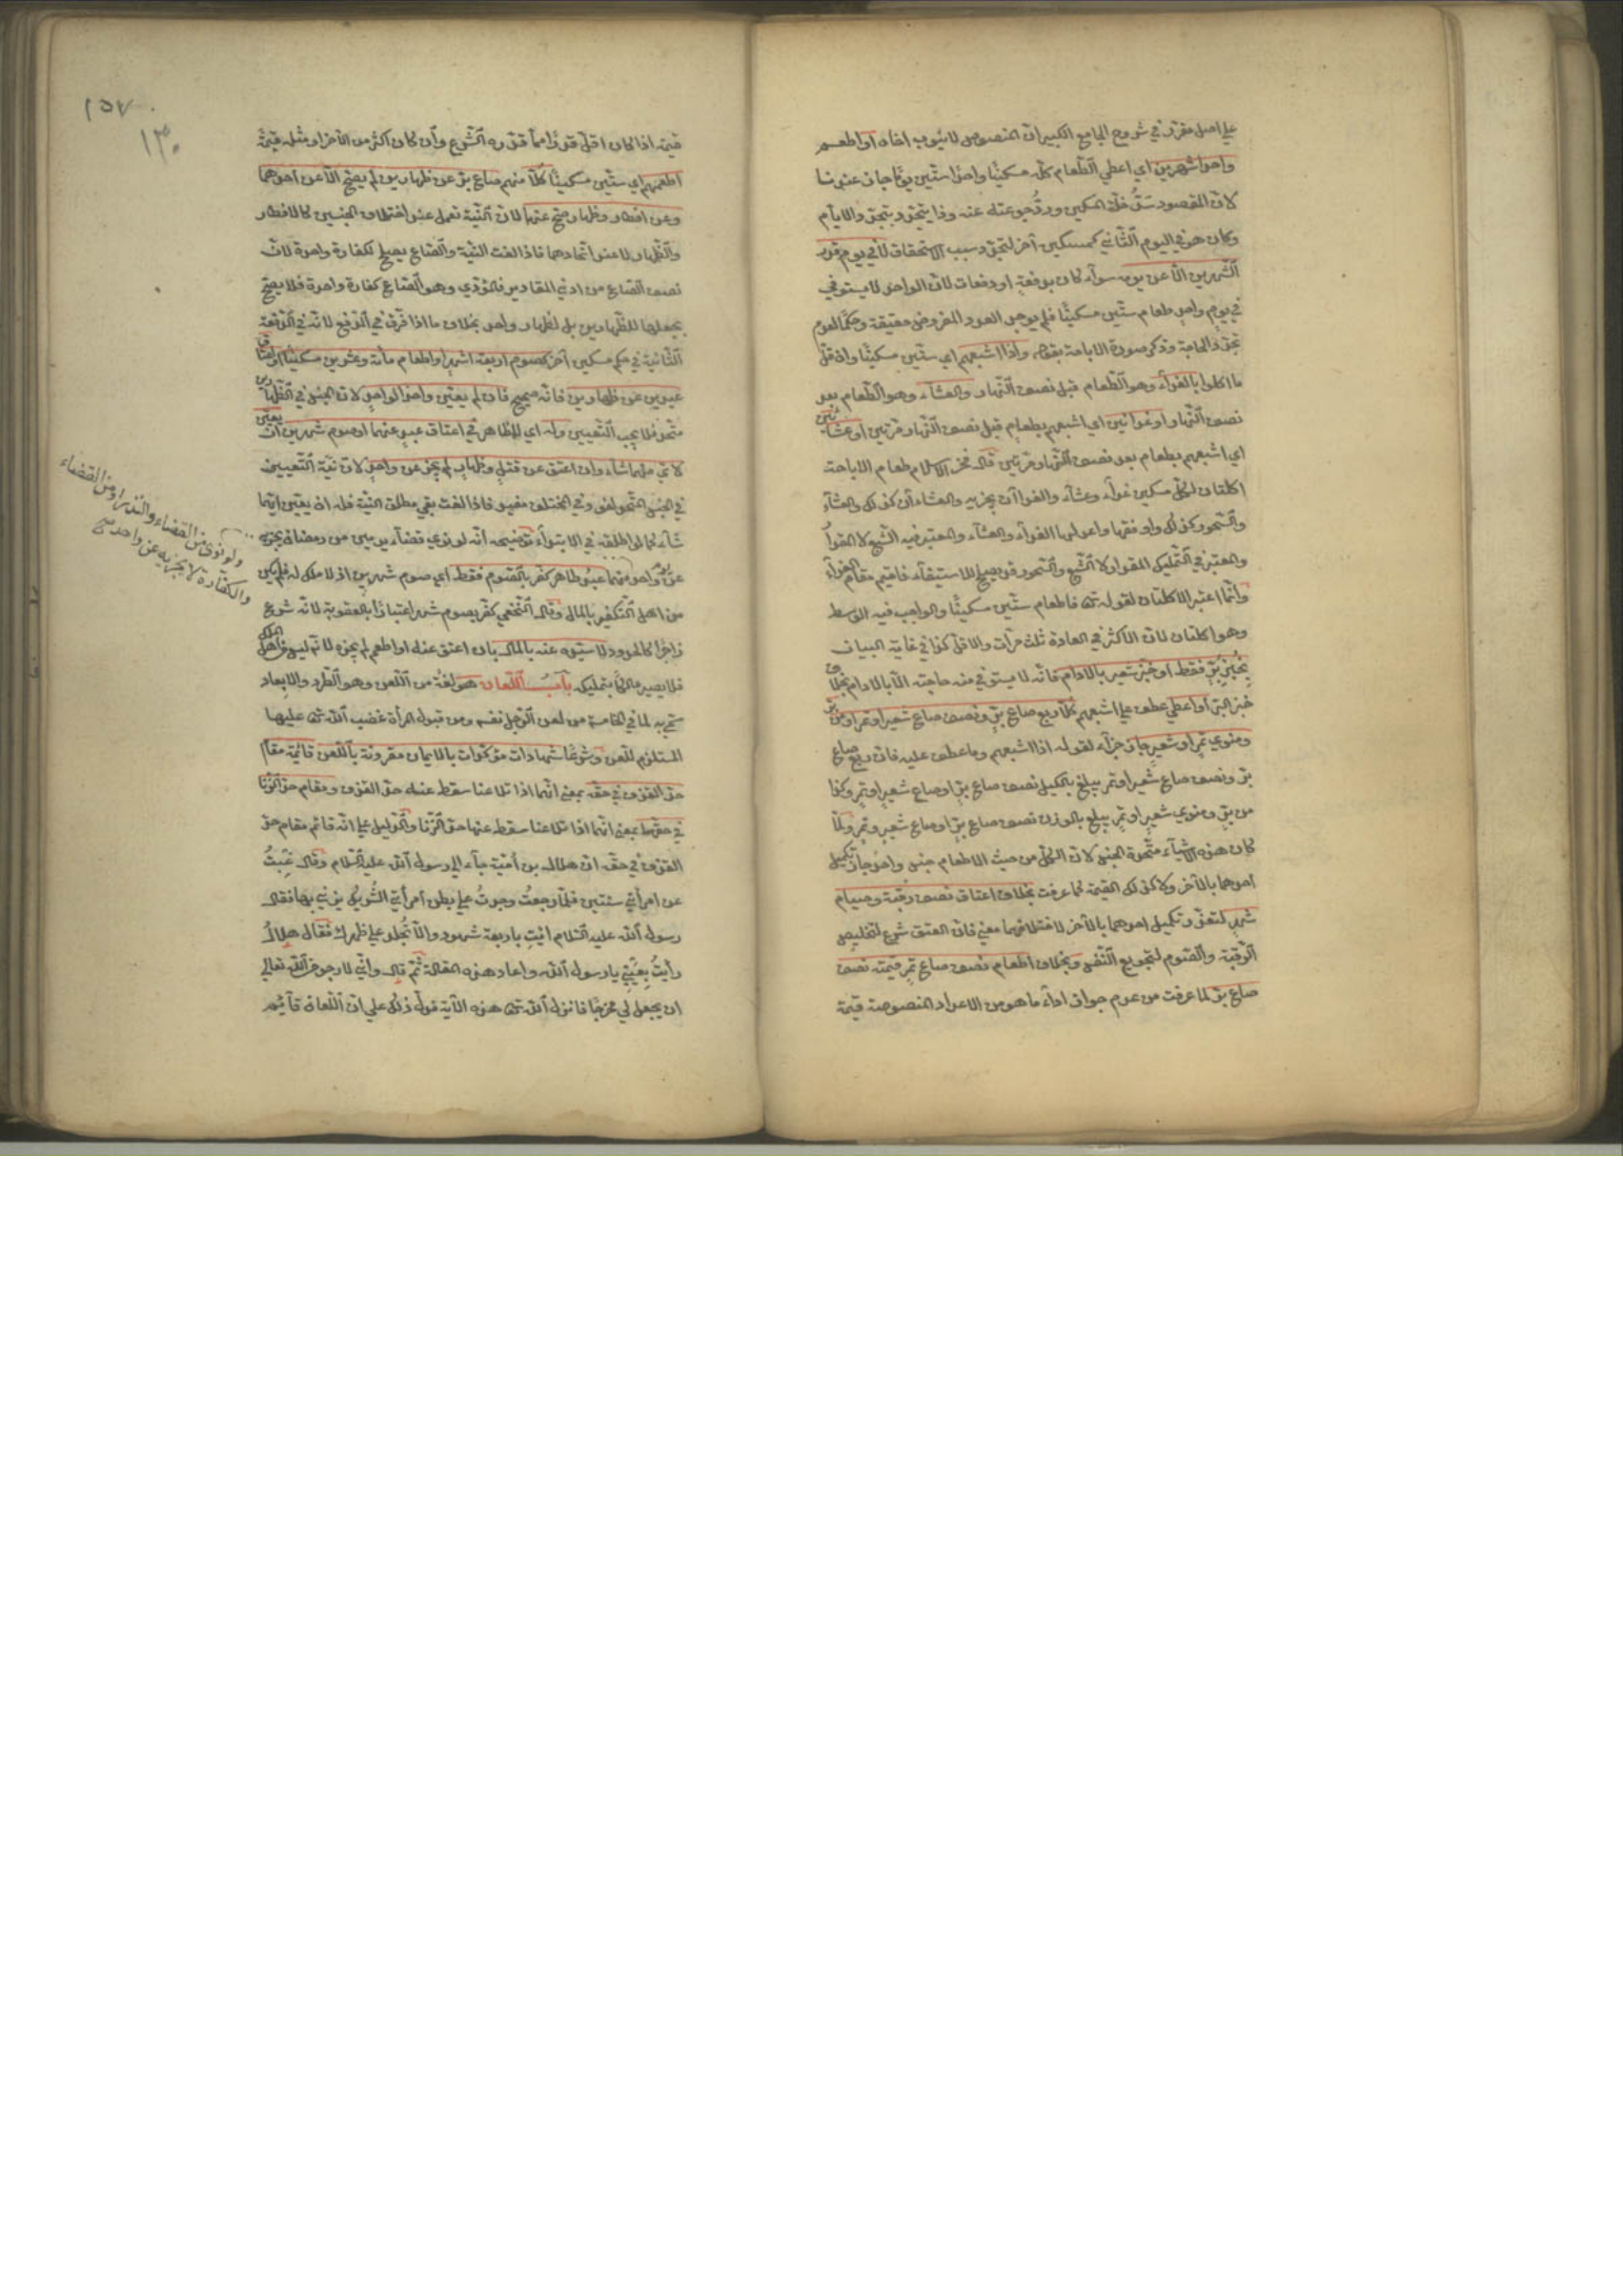 علي اصل مقرر في شروح الجامع الكبير ان المنصوص لا ينوب اخاه او اطعم
واحدا شهرين اي اعطي الطعام كله مسكينا واحدا ستين يوما جاز عندنا
لان المقصود سد خلة المسكين ورد جوعته عنه وذا يتجدد بتجدد الايام
وكان هو في اليوم الثاني كمسكين آخر لتجدد سبب الاستحقاق لا في يوم قدر
الشهرين الا عن يومه سوآء كان بدفعة او دفعات لان الواحد لا يستوفي
في يوم واحد طعام ستين مسكينا فلم يوجد العدد المفروض حقيقة وحكما لعدم
تجدد الحاجة وذكر صورة الاباحة بقوله واذا اشبعهم اي ستين مسكينا وان قل
ما اكلوا بالغدآء وهو الطعام قبل نصف النهار والعشآء وهو الطعام بعد
نصف النهار او غدائين اي اشبعهم بطعام قبل نصف النهار مرتين او عشائين
اي اشبعهم بطعام بعد نصف النهار مرتين قال فخر الاسلام طعام الاباحة
اكلتان لكل مسكين غدآء وعشآء والغداآن يجزيه والعشاءآن كذلك والعشآء
والسحور كذلك واوفقها واعدلها الغدآء والعشآء والمعتبر فيه الشبع لا المقدار
والمعتبر في التمليك المقدار لا الشبع والسحور قد يصلح للاستيفاء فاقيم مقام الغدآء
وانما اعتبر الاكلتان لقوله تعا فاطعام ستين مسكينا والواجب فيه الوسط
وهو اكلتان لان الاكثر في العادة ثلث مرات والاقل كذا في غاية البيان
بخبز بر فقط او خبز شعير بالادام فانه لا يستوفي منه حاجته الا بالادام بخلاف
خبز البر او اعطي عطف علي اشبعهم كلا ربع صاع بر ونصف صاع شعير او تمر او من بر
ومنوي تمر او شعير جاز جزآء لقوله اذا اشبعهم وما عطف عليه فان ربع صاع
بر ونصف صاع شعير او تمر يبلغ بالكيل نصف صاع بر او صاع شعير او تمر وكذا
من بر ومنوي شعير او تمر يبلغ بالوزن نصف صاع بر او صاع شعير وتمر ولما
كان هذه الاشيآء متحدة الجنس لان الكل من حيث الاطعام جنس واحد جاز تكميل
احدهما بالآخر ولا كذلك القيمة لما عرفت بخلاف اعتاق نصف رقبة وصيام
شهر لتعذر تكميل احدهما بالآخر لاختلافهما معني فان العتق شرع لتخليص
الرقبة والصوم لتجويع النفس وبخلاف اطعام نصف صاع تمر قيمته نصف
صاع بر لما عرفت من عدم جواز ادآء ما هو من الاعداد المنصوصة قيمة
١٥٧
١٣٠
قيمة اذا كان اقل قدرا مما قدره الشرع وان كان اكثر من الآخر او مثله قيمة
اطعمهم اي ستين مسكينا كلا منهم صاع بر عن ظهارين لم يصح الا عن احدهما
وعن افطار وظهار صح عنهما لان النية تعمل عند اختلاف الجنسين كالافطار
والظهار لا عند اتحادهما فاذا لغت النية والصاع يصلح لكفارة واحدة لان
نصف الصاع من ادني المقادير فالمؤدي وهو الصاع كفارة واحدة فلا يصح
بجعلها للظهارين بل لظهار واحد بخلاف ما اذا فرق في الدفع لانه في الدفعة
الثانية في حكم مسكين آخر كصوم اربعة اشهر او اطعام مائة وعشرين مسكينا او اعتاق
عبدين عن ظهارين فانه صحيح فان لم يعين واحدا لواحد لان الجنس في الظهارين
متحد فلا يجب التعيين وله اي للمظاهر في اعتاق عبد عنهما او صوم شهرين ان يعين
لاي منهما شآء وان اعتق عن قتل وظهار لم يجز عن واحد لان نية التعيين
في الجنس المتحد لغو وفي المختلف مفيد فاذا لغت بقي مطلق النية فله ان يعين ايهما
شآء كما لو اطلقه في الابتدآء توضيحه انه لو نوي قضآء يومين من رمضان يجزيه
عن واحد منهما عبد ظاهر كفر بالصوم فقط اي صوم شهرين اذ لا ملك له فلم يكن
من اهل التكفير بالمال وقال النخعي كفر بصوم شهر اعتبارا بالعقوبة لانه شرع
زاجرا كالحدود لا سيده عنه بالمال بان اعتق عنه او اطعم لم يجزه لانه ليس من اهل الملك
فلا يصير مالكا بتمليكه باب اللعان هو لغة من اللعن وهو الطرد والابعاد
سمي به لما في الخامسة من لعن الرجل نفسه ومن قبول المرأة غضب الله تعا عليها
المستلزم للعن وشرعا شهادات مؤكدات بالايمان مقرونة باللعن قائمة مقام
حد القذف في حقه بمعني انهما اذا تلاعنا سقط عنه حد القذف ومقام حد الزنا
في حقها بمعني انهما اذا تلاعنا سقط عنها حد الزنا والدليل علي انه قائم مقام حد
القذف في حقه ان هلال بن امية جآء الي رسول الله عليه السلام وقال غبت
عن امرأتي سنتين فلما رجعت وجدت علي بطن امرأتي الشريك يزني بها فقال
رسول الله عليه السلام ائت باربعة شهود والا تجلد علي ظهرك فقال هلال
رأيت بعيني يا رسول الله واعاد هذه المقالة ثم قال واني لارجو من الله تعالي
ان يجعل لي مخرجا فانزل الله تعا هذه الآية فدل ذلك علي ان اللعان قآئم
ولو نوي من القضاء والنذر او من القضاء
والكفارة لا يجزيه عن واحد